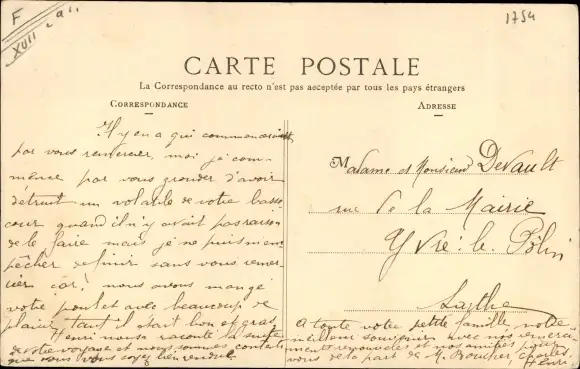 F
XVII - a"
1754
CARTE POSTALE
La Correspondance au recto n'est pas acceptée par tous les pays étrangers
CORRESPONDANCE
ADRESSE
Il y en a qui commenceraient
par vous remercier, moi je com-
mence par vous gronder d'avoir
détruit un volatile de votre basse
cour quand il n'y avait pas raison
de le faire mais je ne puis m'em
pêcher de finir sans vous remer-
cier car, nous avons mangé
votre poulet avec beaucoup de
plaisir tant il était bon et gras,
Henri nous a raconté la suite
de votre voyage et nous sommes contents
que vous vous soyez bien rendus
Madame et Monsieur Devault
rue de la Mairie
Yvré-le-Pôlin
Sarthe
A toute votre petite famille, notre
meilleur souvenir avec nos remerci-
ments renouvelés et nos amitiés pour
vous de la part de M. Boucher, Charles,
Henri